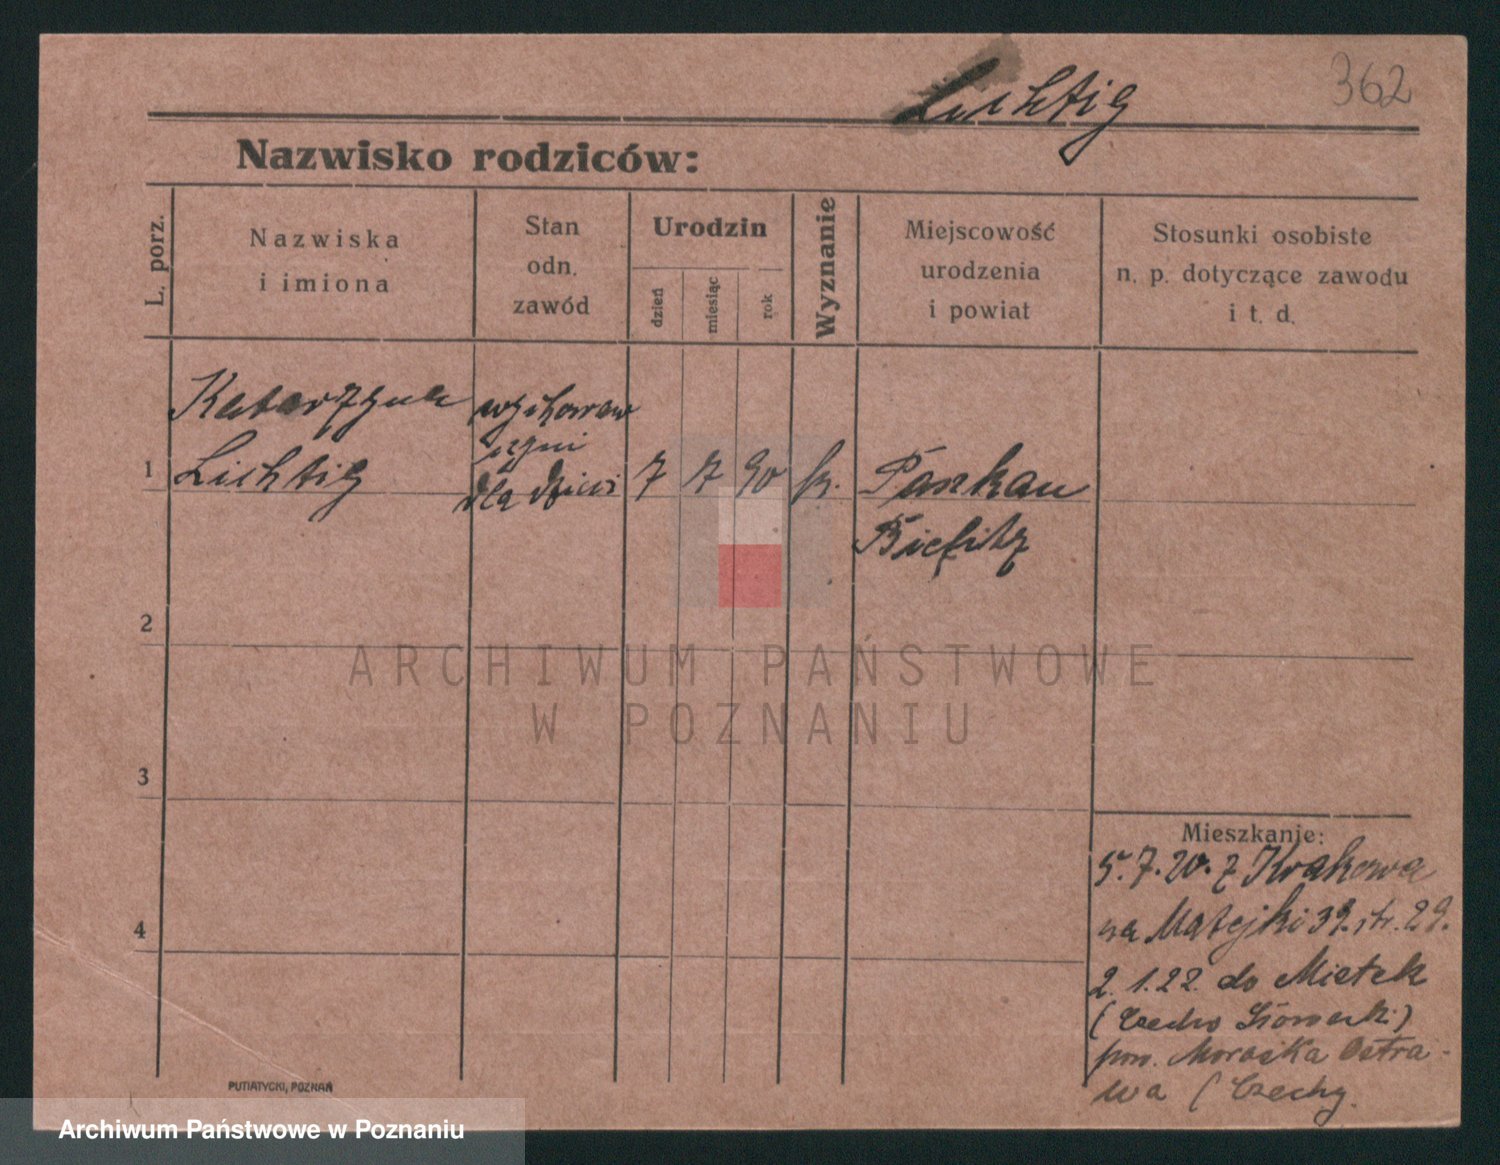 Lichtig
362
Nazwisko rodziców:
L. porz.
Nazwiska
i imiona
Stan
odn.
zawód
Urodzin
dzień
miesiąc
rok
Wyznanie
Miejscowość
urodzenia
i powiat
Stosunki osobiste
n. p. dotyczące zawodu
i t. d.
Katarzyna
wychowaw
czyni
1 Lichtig dla dzieci 7 7 90 Paskau
Bielitz
2
ARCHIWUM PAŃSTWOWE
W POZNANIU
3
Mieszkanie:
5.7.20. z Krakowa
na Matejki 39. str. 29.
4
2.1.22. do Mistek
(Czecho
pow. Moraska Ostra-
wa (Czechy.
PUTIATYCKI, POZNAŃ
Archiwum Państwowe w Poznaniu